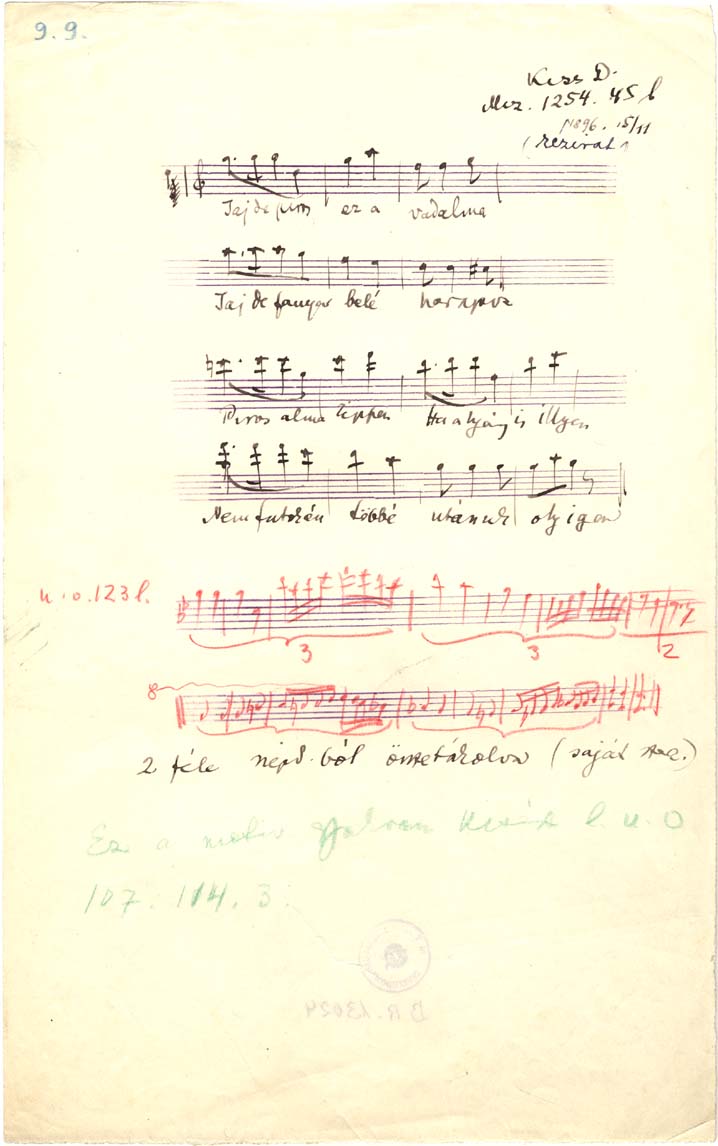 9.9.
Kiss D.
Mez. 1254. 45 l
1896. 15/11
(kézirat)
Jaj de piros ez a vadalma
Jaj de fanyar belé harapva
Piros alma éppen Ha a lyány is illyen
Nem futokén többé utánuk oly igen
u.o. 123 l.
3 3 2
8
2 féle népd.ból összetákolva (saját
Ez a motiv l. u.o
107. 114. 3.
B R. 13024